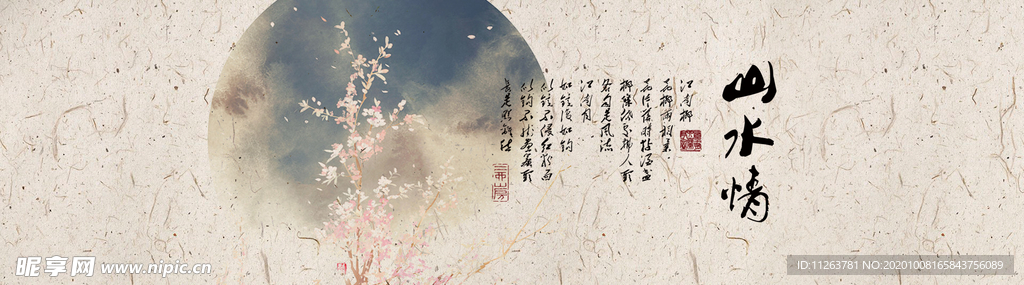 山水情
江南柳
花柳两相柔
花片落时粘酒盏
柳条低处拂人头
各自是风流
江南月
如镜复如钩
似镜不侵红粉面
似钩不挂画帘头
长是照离愁
昵享网 www.nipic.cn
ID:11263781 NO:20201008165843756089